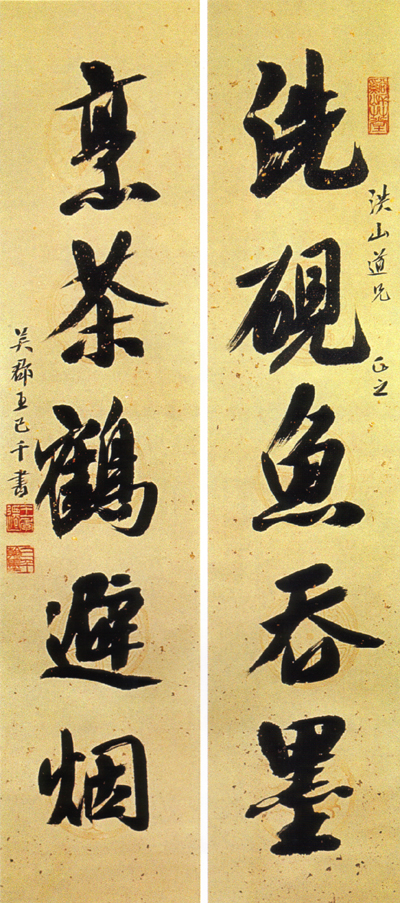 洗砚鱼吞墨
洪山道兄 正之
烹茶鹤避烟
吴郡王己千书